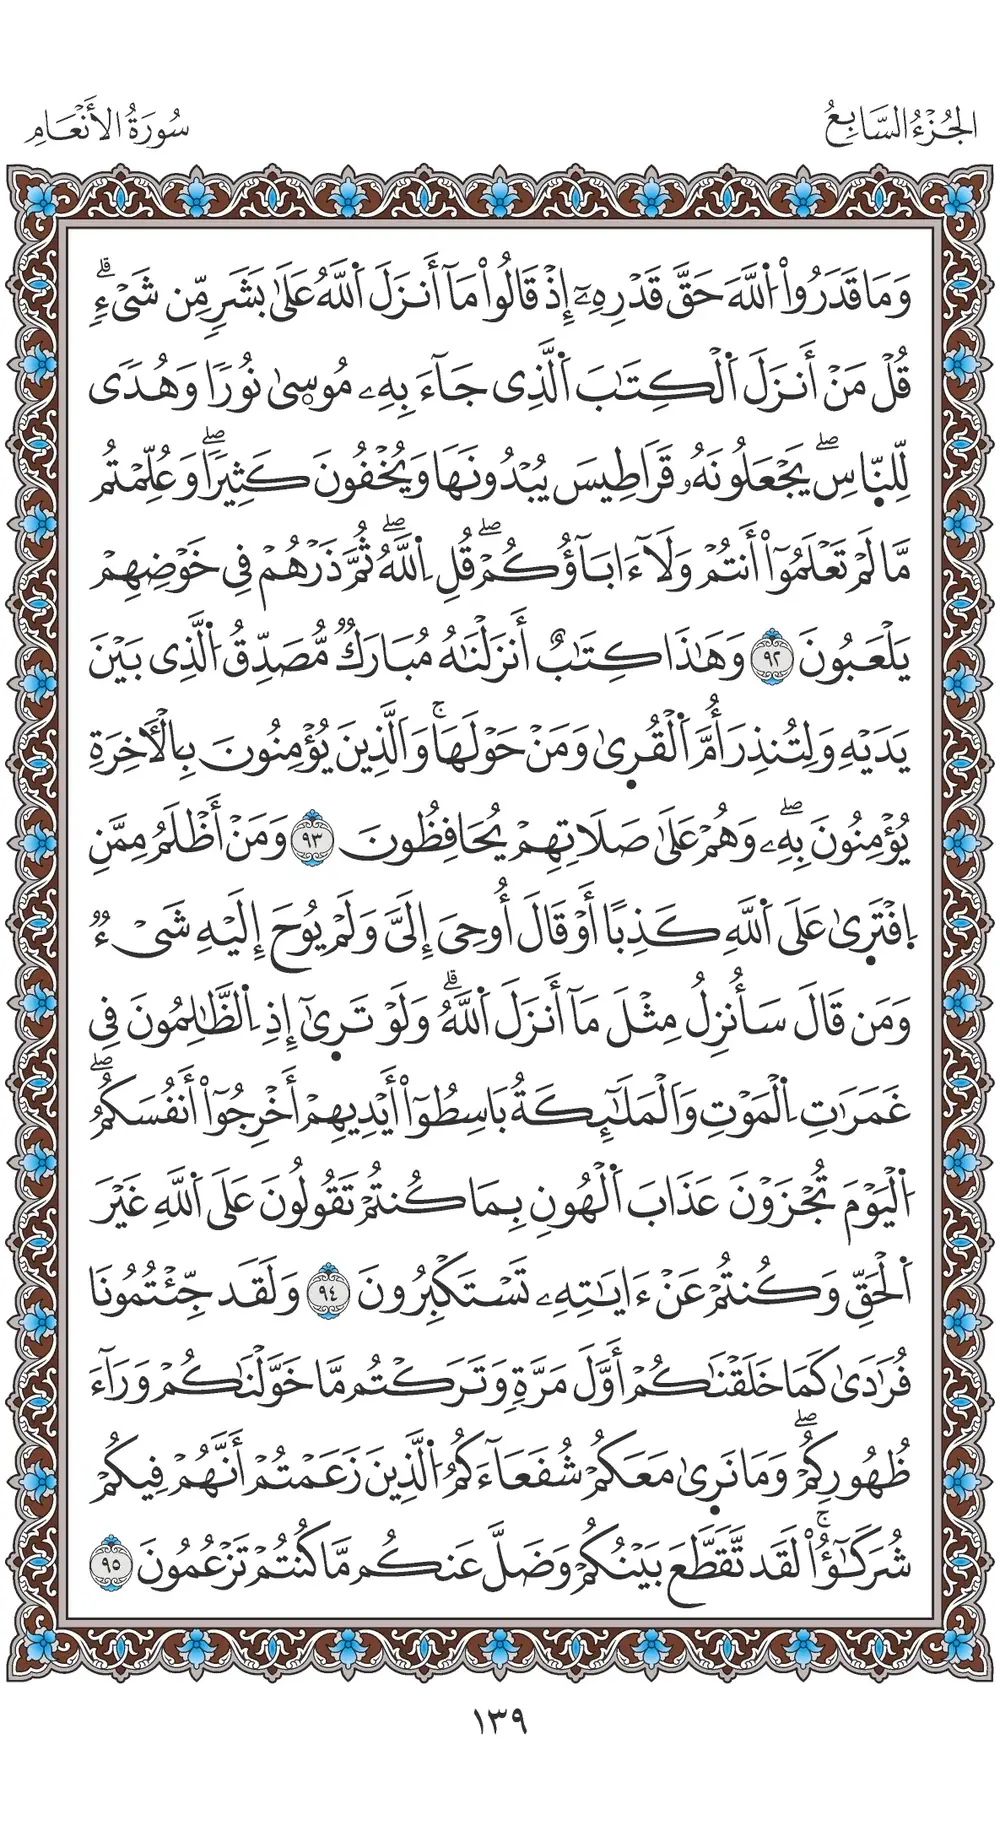 الجُزْءُ السَّابِعُ
سُورَةُ الأَنْعَامِ
وَمَا قَدَرُواْ اُللَّهَ حَقَّ قَدْرِهِۦٓ إِذْ قَالُواْ مَآ أَنزَلَ اَللَّهُ عَلَىٰ بَشَرٖ مِّن شَيْءٖۗ
قُلْ مَنْ أَنزَلَ اَلْكِتَٰبَ اَلَّذِي جَآءَ بِهِۦ مُوسىٰ نُورٗا وَهُدٗى
لِّلنَّاسِۖ يَجْعَلُونَهُۥ قَرَاطِيسَ يُبْدُونَهَا وَيُخْفُونَ كَثِيرٗاۖ وَعُلِّمْتُم
مَّا لَمْ تَعْلَمُوٓاْ أَنتُمْ وَلَآ ءَابَآؤُكُمْۖ قُلِ اِللَّهُۖ ثُمَّ ذَرْهُمْ فِي خَوْضِهِمْ
يَلْعَبُونَ ٩٢ وَهَٰذَا كِتَٰبٌ أَنزَلْنَٰهُ مُبَارَكٞ مُّصَدِّقُ اُلَّذِي بَيْنَ
يَدَيْهِ وَلِتُنذِرَ أُمَّ اَلْقُرىٰ وَمَنْ حَوْلَهَاۚ وَالَّذِينَ يُؤْمِنُونَ بِالْأٓخِرَةِ
يُؤْمِنُونَ بِهِۦۖ وَهُمْ عَلَىٰ صَلَاتِهِمْ يُحَافِظُونَ ٩٣ وَمَنْ أَظْلَمُ مِمَّنِ
اِفْتَرىٰ عَلَى اَللَّهِ كَذِبًا أَوْ قَالَ أُوحِيَ إِلَيَّ وَلَمْ يُوحَ إِلَيْهِ شَيْءٞ
وَمَن قَالَ سَأُنزِلُ مِثْلَ مَآ أَنزَلَ اَللَّهُۗ وَلَوْ تَرىٰٓ إِذِ اِلظَّٰلِمُونَ فِي
غَمَرَٰتِ اِلْمَوْتِ وَالْمَلَٰٓئِكَةُ بَاسِطُوٓاْ أَيْدِيهِمْ أَخْرِجُوٓاْ أَنفُسَكُمُۖ
اُلْيَوْمَ تُجْزَوْنَ عَذَابَ اَلْهُونِ بِمَا كُنتُمْ تَقُولُونَ عَلَى اَللَّهِ غَيْرَ
اَلْحَقِّ وَكُنتُمْ عَنْ ءَايَٰتِهِۦ تَسْتَكْبِرُونَ ٩٤ وَلَقَد جِّئْتُمُونَا
فُرَٰدَىٰ كَمَا خَلَقْنَٰكُمْ أَوَّلَ مَرَّةٖ وَتَرَكْتُم مَّا خَوَّلْنَٰكُمْ وَرَآءَ
ظُهُورِكُمْۖ وَمَا نَرىٰ مَعَكُمْ شُفَعَآءَكُمُ اُلَّذِينَ زَعَمْتُمْ أَنَّهُمْ فِيكُمْ
شُرَكَٰٓؤُاْۚ لَقَد تَّقَطَّعَ بَيْنُكُمْ وَضَلَّ عَنكُم مَّا كُنتُمْ تَزْعُمُونَ ٩٥
١٣٩